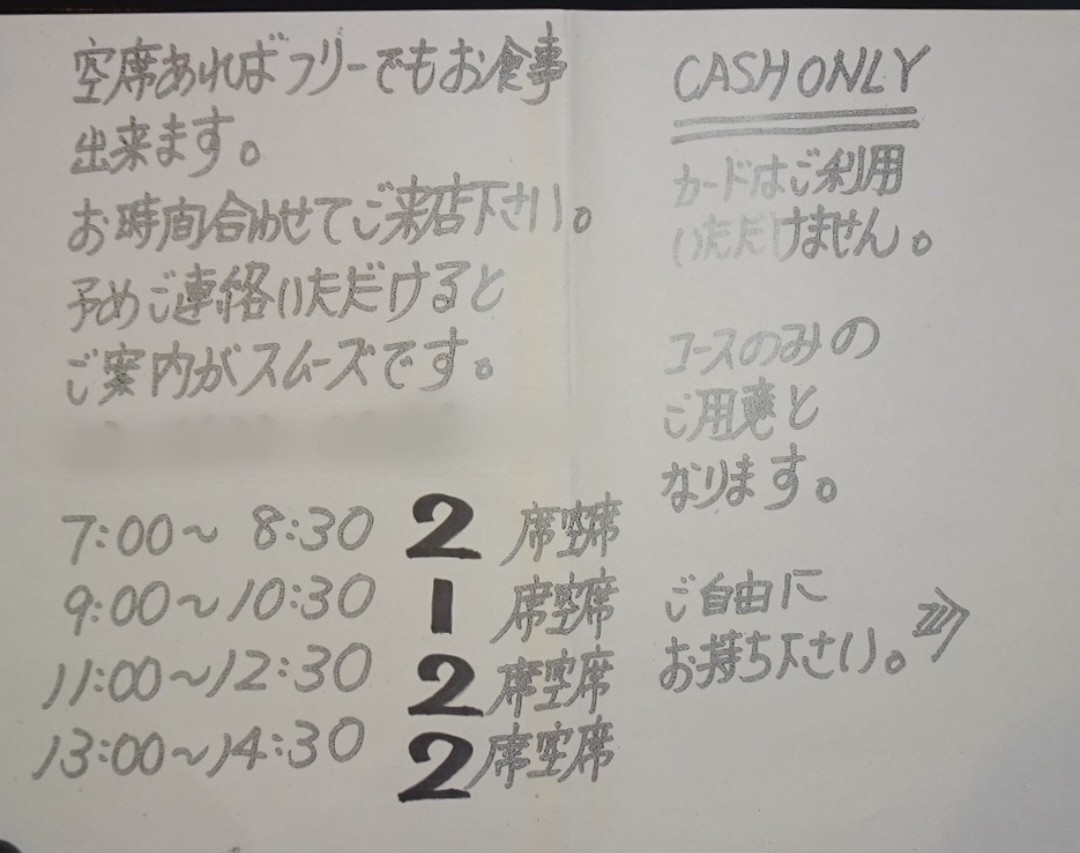 空席あればフリーでもお食事
出来ます。
お時間合わせてご来店下さい。
予めご連絡いただけると
ご案内がスムーズです。
7:00～8:30 2席空席
9:00～10:30 1席空席
11:00～12:30 2席空席
13:00～14:30 2席空席
CASH ONLY
カードはご利用
いただけません。
コースのみの
ご用意と
なります。
ご自由に
お持ち下さい。